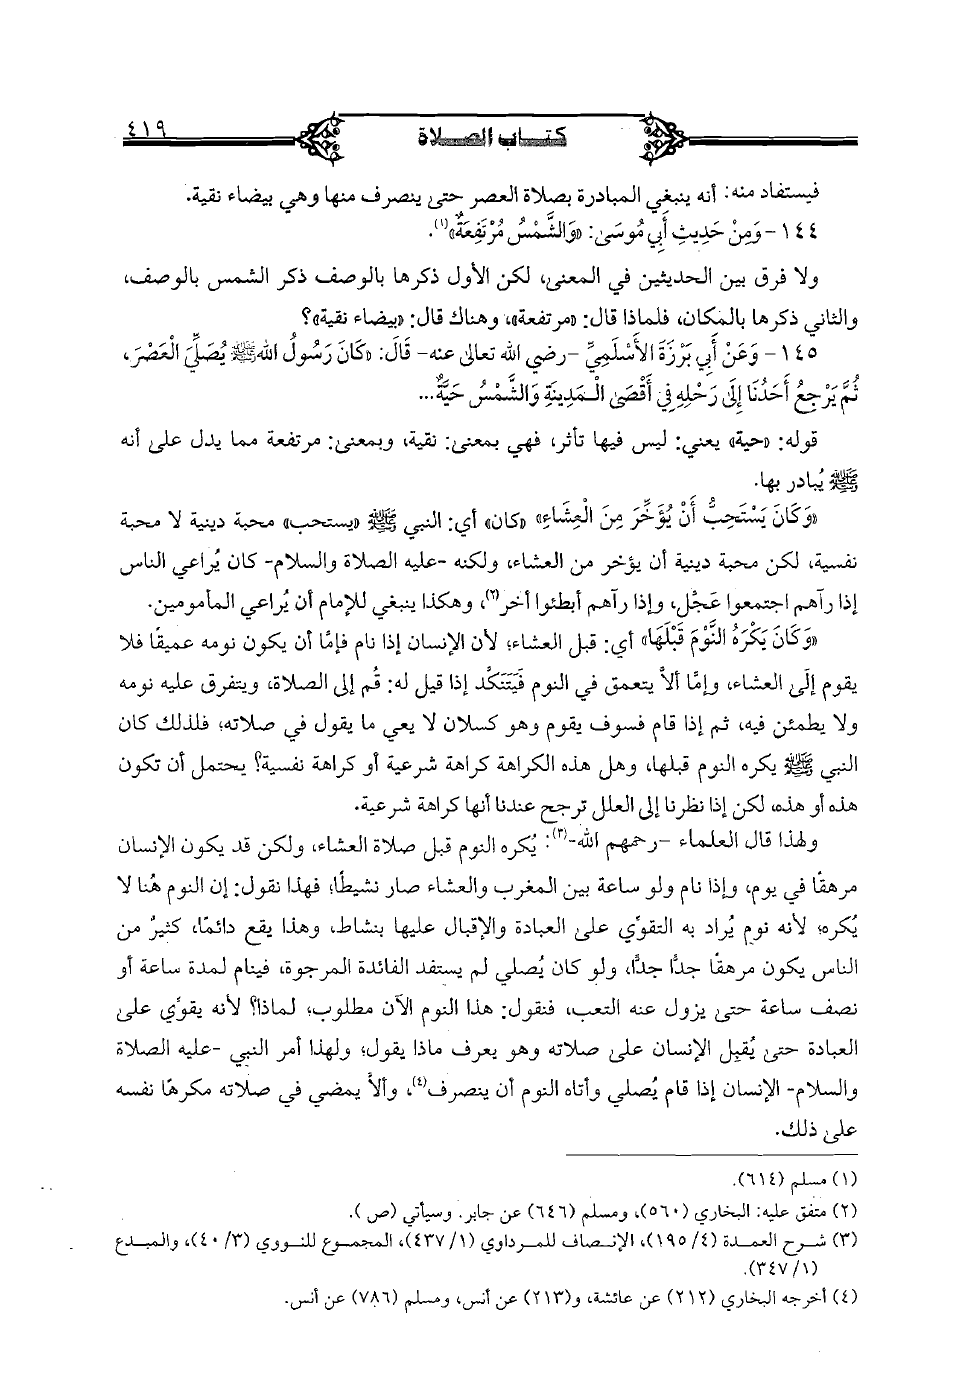 ٤١٩
كتاب الصلاة
فيستفاد منه: أنه ينبغي المبادرة بصلاة العصر حتى ينصرف منها وهي بيضاء نقية.
١٤٤- وَمِنْ حَدِيثِ أَبِي مُوسَى: «وَالشَّمْسُ مُرْتَفِعَةٌ»(١).
ولا فرق بين الحديثين في المعنى، لكن الأول ذكرها بالوصف ذكر الشمس بالوصف،
والثاني ذكرها بالمكان، فلماذا قال: «مرتفعة»، وهناك قال: «بيضاء نقية»؟
١٤٥- وَعَنْ أَبِي بَرْزَةَ الأَسْلَمِيِّ -رضي الله تعالى عنه- قَالَ: «كَانَ رَسُولُ اللهِ ﷺ يُصَلِّي الْعَصْرَ،
ثُمَّ يَرْجِعُ أَحَدُنَا إِلَى رَحْلِهِ فِي أَقْصَى الْمَدِينَةِ وَالشَّمْسُ حَيَّةٌ...
قوله: «حية» يعني: ليس فيها تأثر، فهي بمعنى: نقية، وبمعنى: مرتفعة مما يدل على أنه
ﷺ يُبادر بها.
«وَكَانَ يَسْتَحِبُّ أَنْ يُؤَخِّرَ مِنَ الْعِشَاءِ» «كان» أي: النبي ﷺ «يستحب» محبة دينية لا محبة
نفسية، لكن محبة دينية أن يؤخر من العشاء، ولكنه -عليه الصلاة والسلام- كان يُراعي الناس
إذا رآهم اجتمعوا عَجَّل، وإذا رآهم أبطئوا أخر(٢)، وهكذا ينبغي للإمام أن يُراعي المأمومين.
«وَكَانَ يَكْرَهُ النَّوْمَ قَبْلَهَا» أي: قبل العشاء؛ لأن الإنسان إذا نام فإمَّا أن يكون نومه عميقًا فلا
يقوم إلَى العشاء، وإمَّا ألاَّ يتعمق في النوم فَيَتَنَكَّد إذا قيل له: قُم إلى الصلاة، ويتفرق عليه نومه
ولا يطمئن فيه، ثم إذا قام فسوف يقوم وهو كسلان لا يعي ما يقول في صلاته؛ فلذلك كان
النبي ﷺ يكره النوم قبلها، وهل هذه الكراهة كراهة شرعية أو كراهة نفسية؟ يحتمل أن تكون
هذه أو هذه، لكن إذا نظرنا إلى العلل ترجح عندنا أنها كراهة شرعية.
ولهذا قال العلماء -رحمهم الله-(٣): يُكره النوم قبل صلاة العشاء، ولكن قد يكون الإنسان
مرهقًا في يوم، وإذا نام ولو ساعة بين المغرب والعشاء صار نشيطًا؛ فهذا نقول: إن النوم هُنا لا
يُكره؛ لأنه نوم يُراد به التقوِّي على العبادة والإقبال عليها بنشاط، وهذا يقع دائمًا، كثيرٌ من
الناس يكون مرهقًا جدًّا جدًّا، ولو كان يُصلي لم يستفد الفائدة المرجوة، فينام لمدة ساعة أو
نصف ساعة حتى يزول عنه التعب، فنقول: هذا النوم الآن مطلوب؛ لماذا؟ لأنه يقوِّي على
العبادة حتى يُقبِل الإنسان على صلاته وهو يعرف ماذا يقول؛ ولهذا أمر النبي -عليه الصلاة
والسلام- الإنسان إذا قام يُصلي وأتاه النوم أن ينصرف(٤)، وألاَّ يمضي في صلاته مكرهًا نفسه
على ذلك.
(١) مسلم (٦١٤).
(٢) متفق عليه: البخاري (٥٦٠)، ومسلم (٦٤٦) عن جابر. وسيأتي (ص ).
(٣) شرح العمدة (٤/ ١٩٥)، الإنصاف للمرداوي (١/ ٤٣٧)، المجموع للنووي (٣/ ٤٠)، والمبدع
(١/ ٣٤٧).
(٤) أخرجه البخاري (٢١٢) عن عائشة، و(٢١٣) عن أنس، ومسلم (٧٨٦) عن أنس.